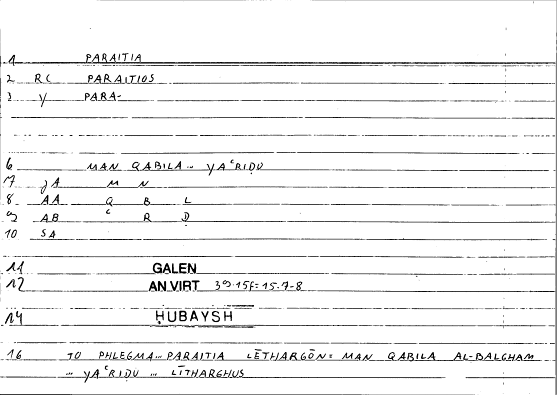 1 PARAITIA
2 RC PARAITIOS
3 Y PARA-
6 MAN QABILA... YAʿRIḌU
7 JA M N
8 AA Q B L
9 AB ʿ R Ḍ
10 SA
11 GALEN
12 AN VIRT 39.15f=15.7-8
14 ḤUBAYSH
16 TO PHLEGMA...PARAITIA LĒTHARGŌN= MAN QABILA AL-BALGHAM
... YAʿRIḌU ... LĪTHARGHUS